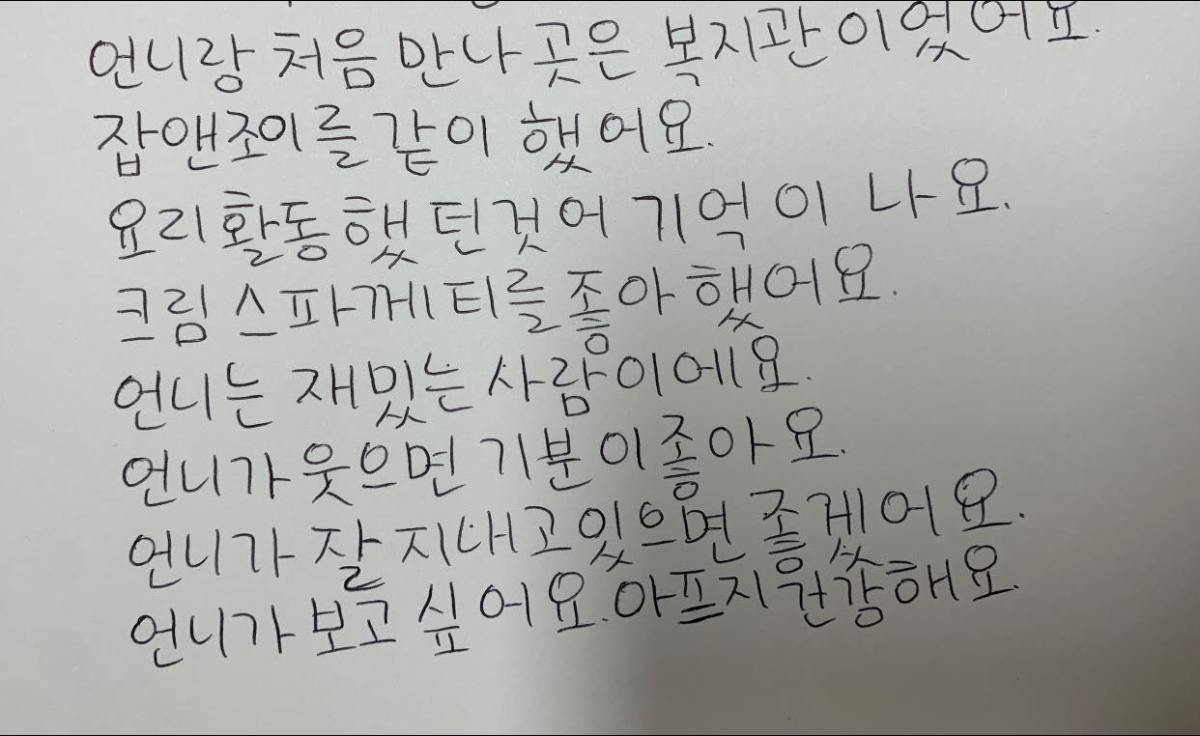 언니랑 처음 만나 곳은 복지관이었어요.
잡앤조이를 같이 했어요.
요리활동했던것어 기억이 나요.
크림 스파게티를 좋아했어요.
언니는 재밌는 사람이에요.
언니가 웃으면 기분이 좋아요.
언니가 잘 지내고있으면 좋겠어요.
언니가 보고 싶어요. 아프지 건강해요.